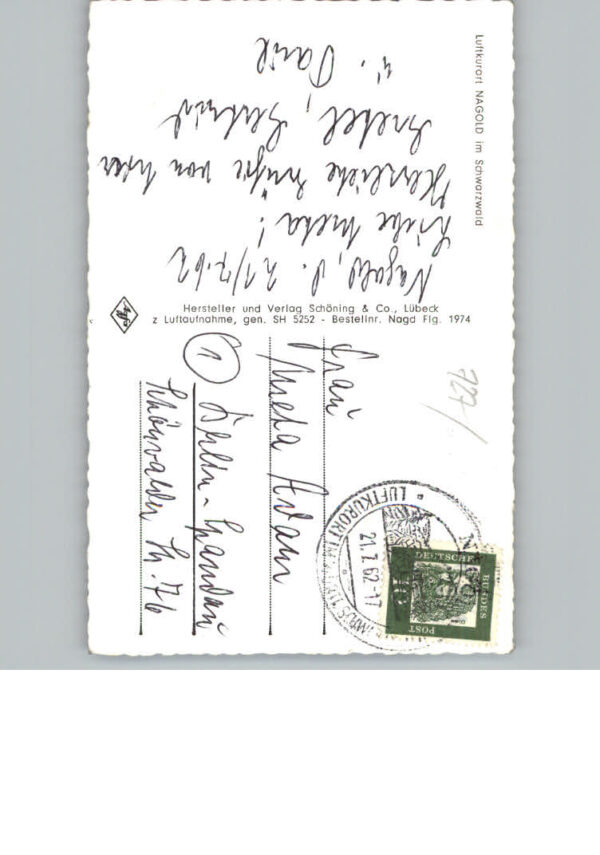 Luftkurort NAGOLD im Schwarzwald
Nagold, d. 21/7.62
Liebe Meta!
Herzliche Grüße von hier
Gretel, Gertrud
u. Paul
Hersteller und Verlag Schöning & Co., Lübeck
z Luftaufnahme, gen. SH 5252 - Bestellnr. Nagd Flg. 1974
Agfa
727/
Frau
Meta Adam
1 Berlin-Spandau
Schönwalder Str. 76
LUFTKURORT IM
21.7.62-17
DEUTSCHE
BUNDES
POST
10
Dürer